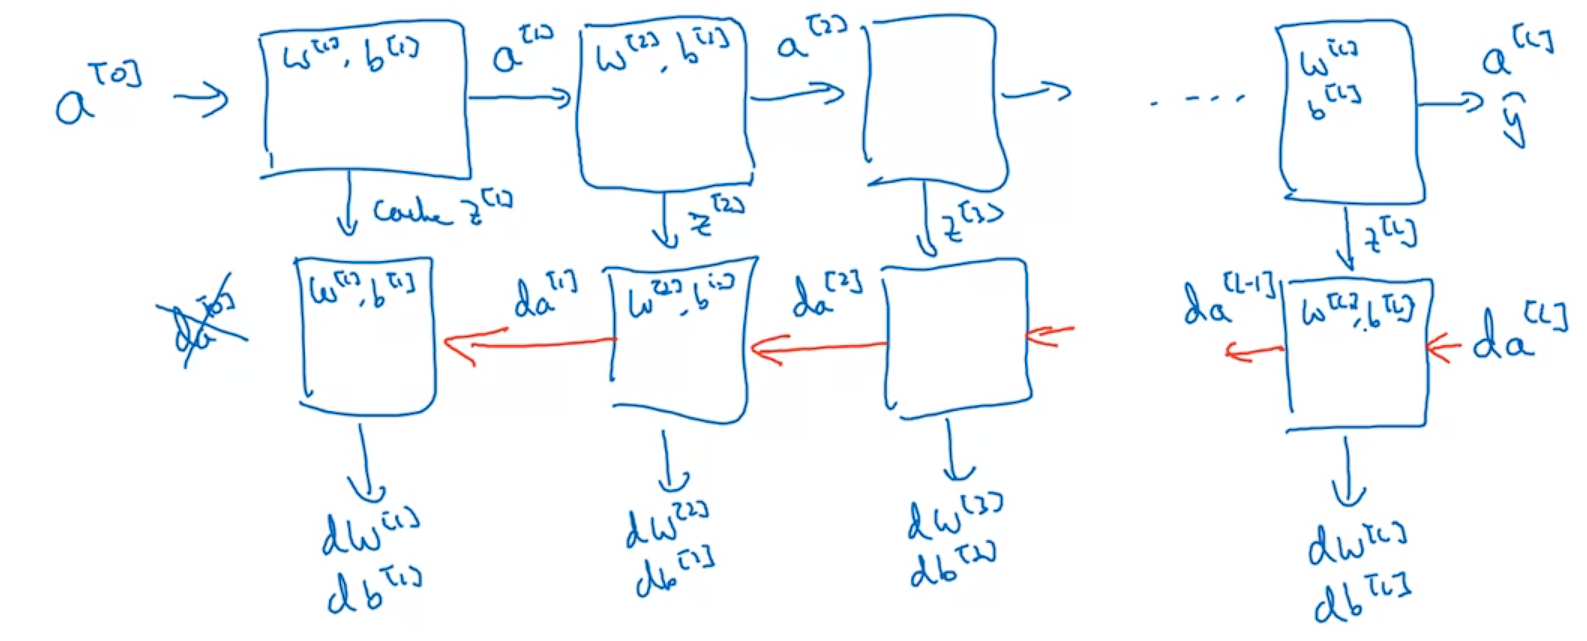 a^[0]
w^[1], b^[1]
a^[1]
w^[2], b^[1]
a^[2]
....
w^[L]
b^[L]
a^[L]
ŷ
cache z^[1]
z^[2]
z^[3]
z^[L]
da^[0]
w^[1], b^[1]
da^[1]
w^[2], b^[2]
da^[2]
da^[L-1]
w^[L], b^[L]
da^[L]
dw^[1]
db^[1]
dw^[2]
dw^[3]
dw^[L]
db^[L]